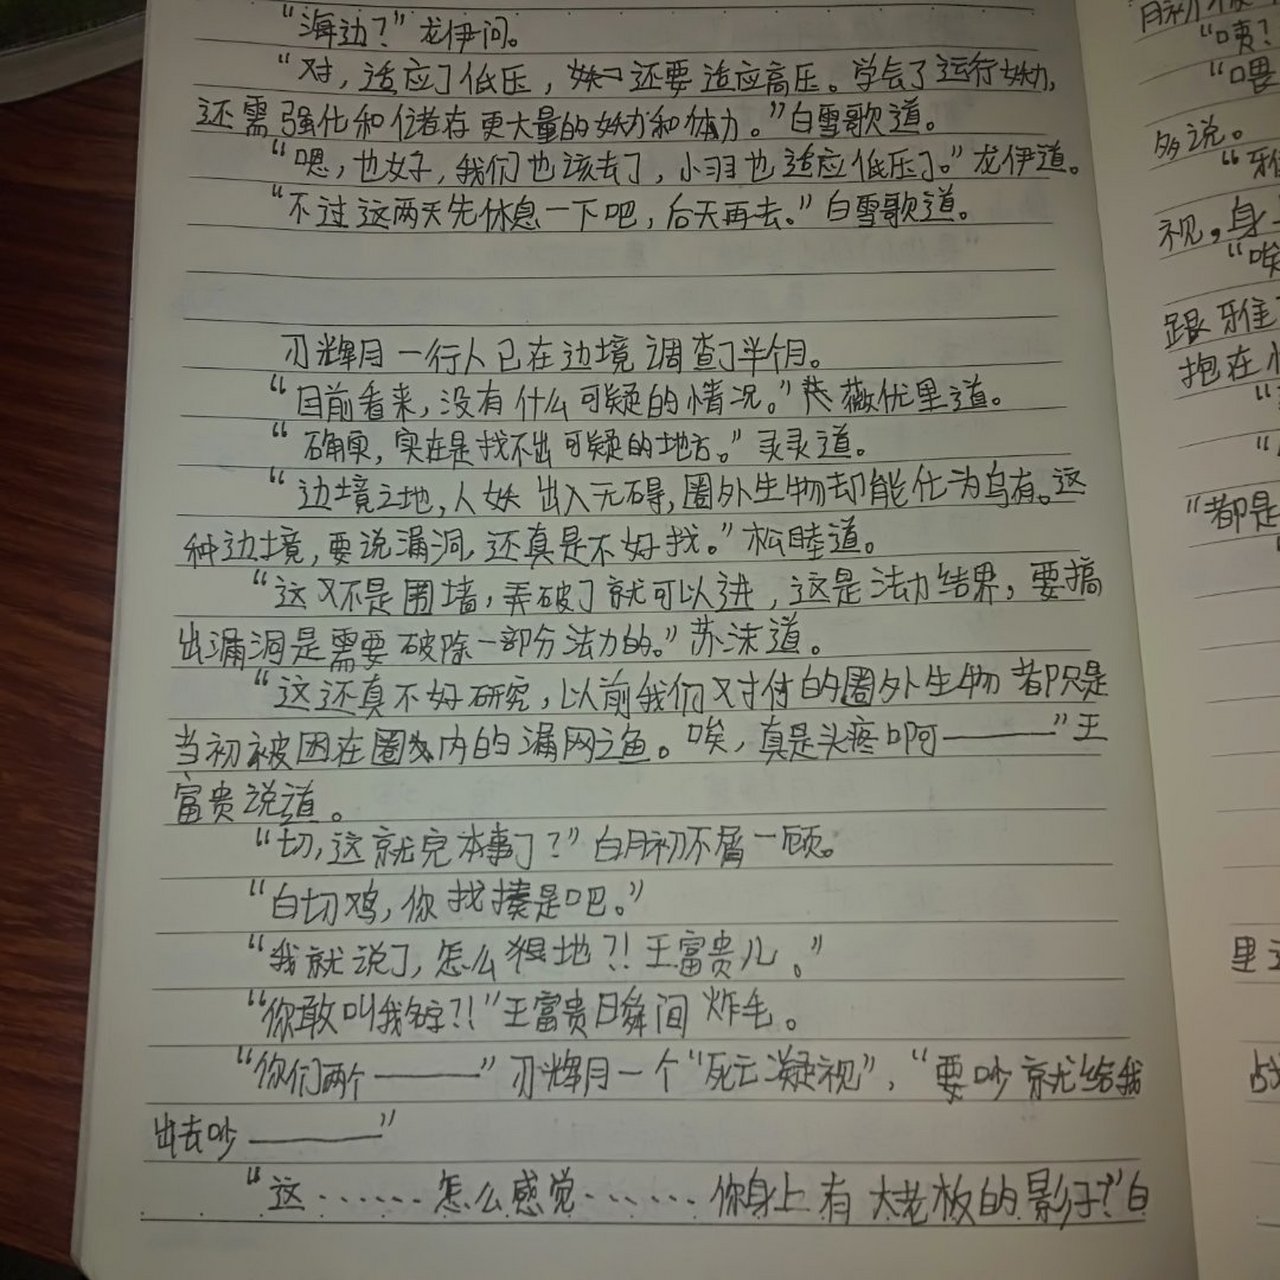 “海边？”龙伊问。
“对，适应了低压，还要适应高压。学会了运行妖力，
还需强化和储存更大量的妖力和体力。”白雪歌道。
“嗯，也好，我们也该去了，小羽也适应低压了。”龙伊道。
“不过这两天先休息一下吧，后天再去。”白雪歌道。
刃辉月一行人已在边境调查了半个月。
“目前看来，没有什么可疑的情况。”薇优里道。
“确实，实在是找不出可疑的地方。”灵灵道。
“边境之地，人妖出入无碍，圈外生物却能化为乌有。这
种边境，要说漏洞，还真是不好找。”松睦道。
“这又不是围墙，弄破了就可以进，这是法力结界，要搞
出漏洞是需要破除一部分法力的。”苏沫道。
“这还真不好研究，以前我们对付的圈外生物都只是
当初被困在圈内的漏网之鱼。唉，真是头疼啊———”王
富贵说道。
“切，这就完本事了？”白月初不屑一顾。
“白切鸡，你找揍是吧。”
“我就说了，怎么狠地？！王富贵儿。”
“你敢叫我名字？！”王富贵瞬间炸毛。
“你们两个———”刃辉月一个“死亡凝视”，“要吵就给我
出去吵———”
“这……怎么感觉……你身上有大老板的影子？”白
月初
“咦？
“喂
多说。
“雅
视，身
“唉
跟雅
抱在
“都是
里
战